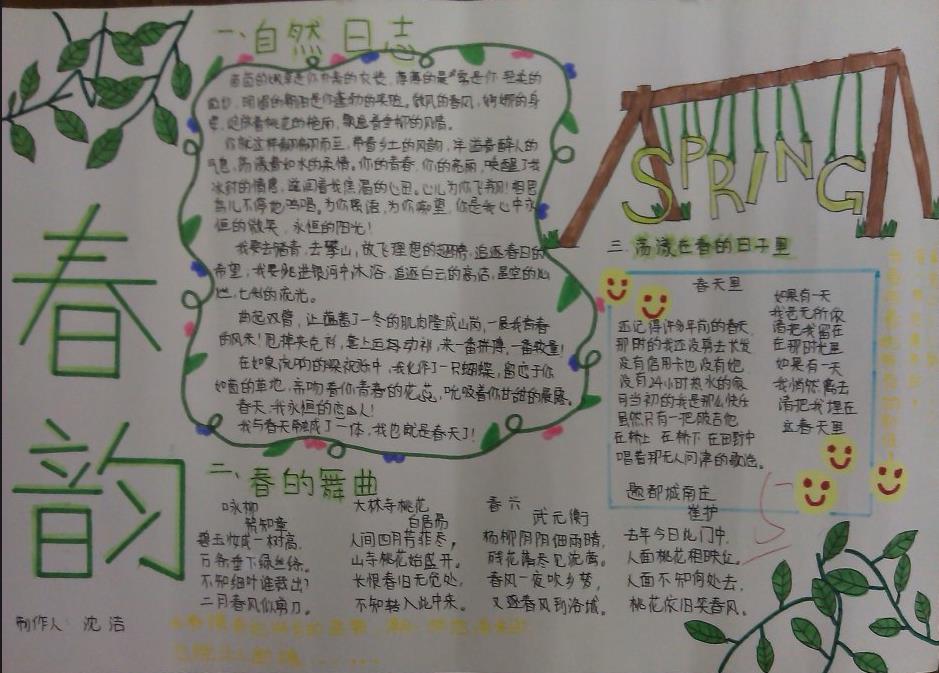 春韵
一、自然日志
茵茵的绿草是你中意的衣裳，薄薄的是雾是你轻柔的
面纱，明媚的朝阳是你喜动的笑脸。微风的春风，婀娜的身
你就这样翩翩而至，带着乡土的风韵，洋溢着醉人的
气息，荡漾着如水的柔情。你的青春，你的亮丽，唤醒了我
冰封的情思，滋润着我焦渴的心田。心儿为你飞翔！相思
鸟儿不停地鸣唱。为你痴语，为你痴望，你是我心中永
恒的微笑，永恒的阳光！
我要去踏青，去攀山，放飞理想的翅膀，追逐春日的
希望，我要跳进银河中沐浴，追逐白云的高洁，星空的
七彩的流光。
曲起双臂，让蕴蓄了一冬的肌肉隆成山岗，一展我青春
的风采！甩掉夹克衫，套上运动衫，来一番拼搏，一番较量！
在如泉流响的梁祝弦中，我化作了一只蝴蝶，留恋于你
如茵的草地，亲吻着你青春的花蕊，吮吸着你甘甜的晨露。
春天，我永恒的恋人！
我与春天融成了一体，我也就是春天了！
二、春的舞曲
咏柳
贺知章
碧玉妆成一树高，
万条垂下绿丝绦。
不知细叶谁裁出？
二月春风似剪刀。
大林寺桃花
白居易
人间四月芳菲尽，
山寺桃花始盛开。
长恨春归无觅处，
不知转入此中来。
春兴
武元衡
杨柳阴阴细雨晴，
残花落尽见流莺。
春风一夜吹乡梦，
又逐春风到洛城。
SPRING
三、荡漾在春的日子里
春天里
还记得许多年前的春天，
那时的我还没剪去长发
没有信用卡也没有她
没有24小时热水的家
可当初的我是那么快乐
虽然只有一把破吉他
在桥上 在桥下 在田野中
唱着那无人问津的歌谣。
如果有一天
我老无所依
请把我留在
在那时光里
如果有一天
我悄然离去
请把我埋在
这春天里
题都城南庄
崔护
去年今日此门中，
人面桃花相映红。
人面不知何处去，
桃花依旧笑春风。
制作人：沈洁